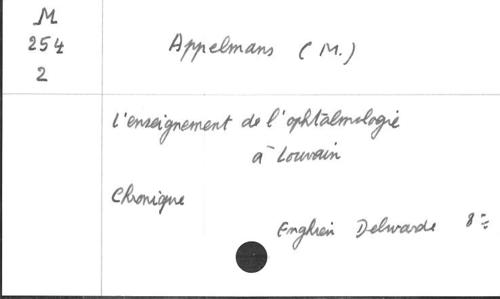 M
254
2
Appelmans (M.)
L'enseignement de l'ophtalmologie
à Louvain
Chronique
Enghien Delwarde 8°